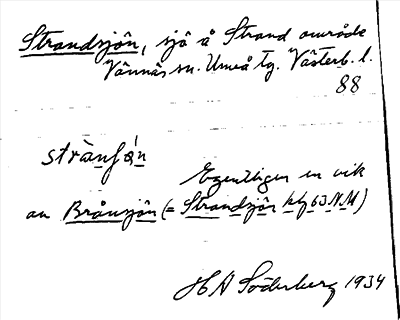 Strandsjön, sjö å Strand område
Vännäs sn. Umeå tg. Västerb. l.
88
Egentligen en vik
av Brånsjön (= Strandsjön kbl 63 N.M)
H A Söderberg 1934